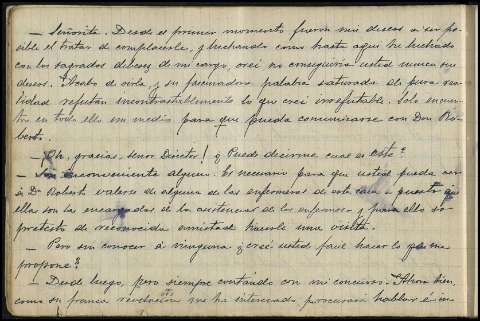 — Señorita. Desde el primer momento fueron mis deseos a ser po-
sible el tratar de complacerla, y luchando como hasta aqui he luchado
con los sagrados deberes de mi cargo, creí no conseguiria usted nunca sus
deseos. Acabo de oirla, y su fascinadora palabra saturada de pura rea-
lidad refutan incontrastablemente lo que creí irrefutable. Solo encuen-
tro en todo ello un medio para que pueda comunicarse con Don Ro-
berto.
— ¡Oh, gracias, señor Director! ¿y Puede decirme cual es este?
— Sin inconveniente alguno. Es necesario para que usted pueda ver
á Dn Robert valerse de alguna de las enfermeras de esta casa puesto que
ellas son las encargadas de la asistencia de los enfermos y para ello so
pretesto de reconocida amistad hacerle una visita.
— Pero sin conocer á ninguna ¿creé usted podré hacer lo que me
propone?
— Desde luego, pero siempre contando con mi concurso. Ahora bien,
como su franca revelación me ha interesado, procuraré hablar é in-